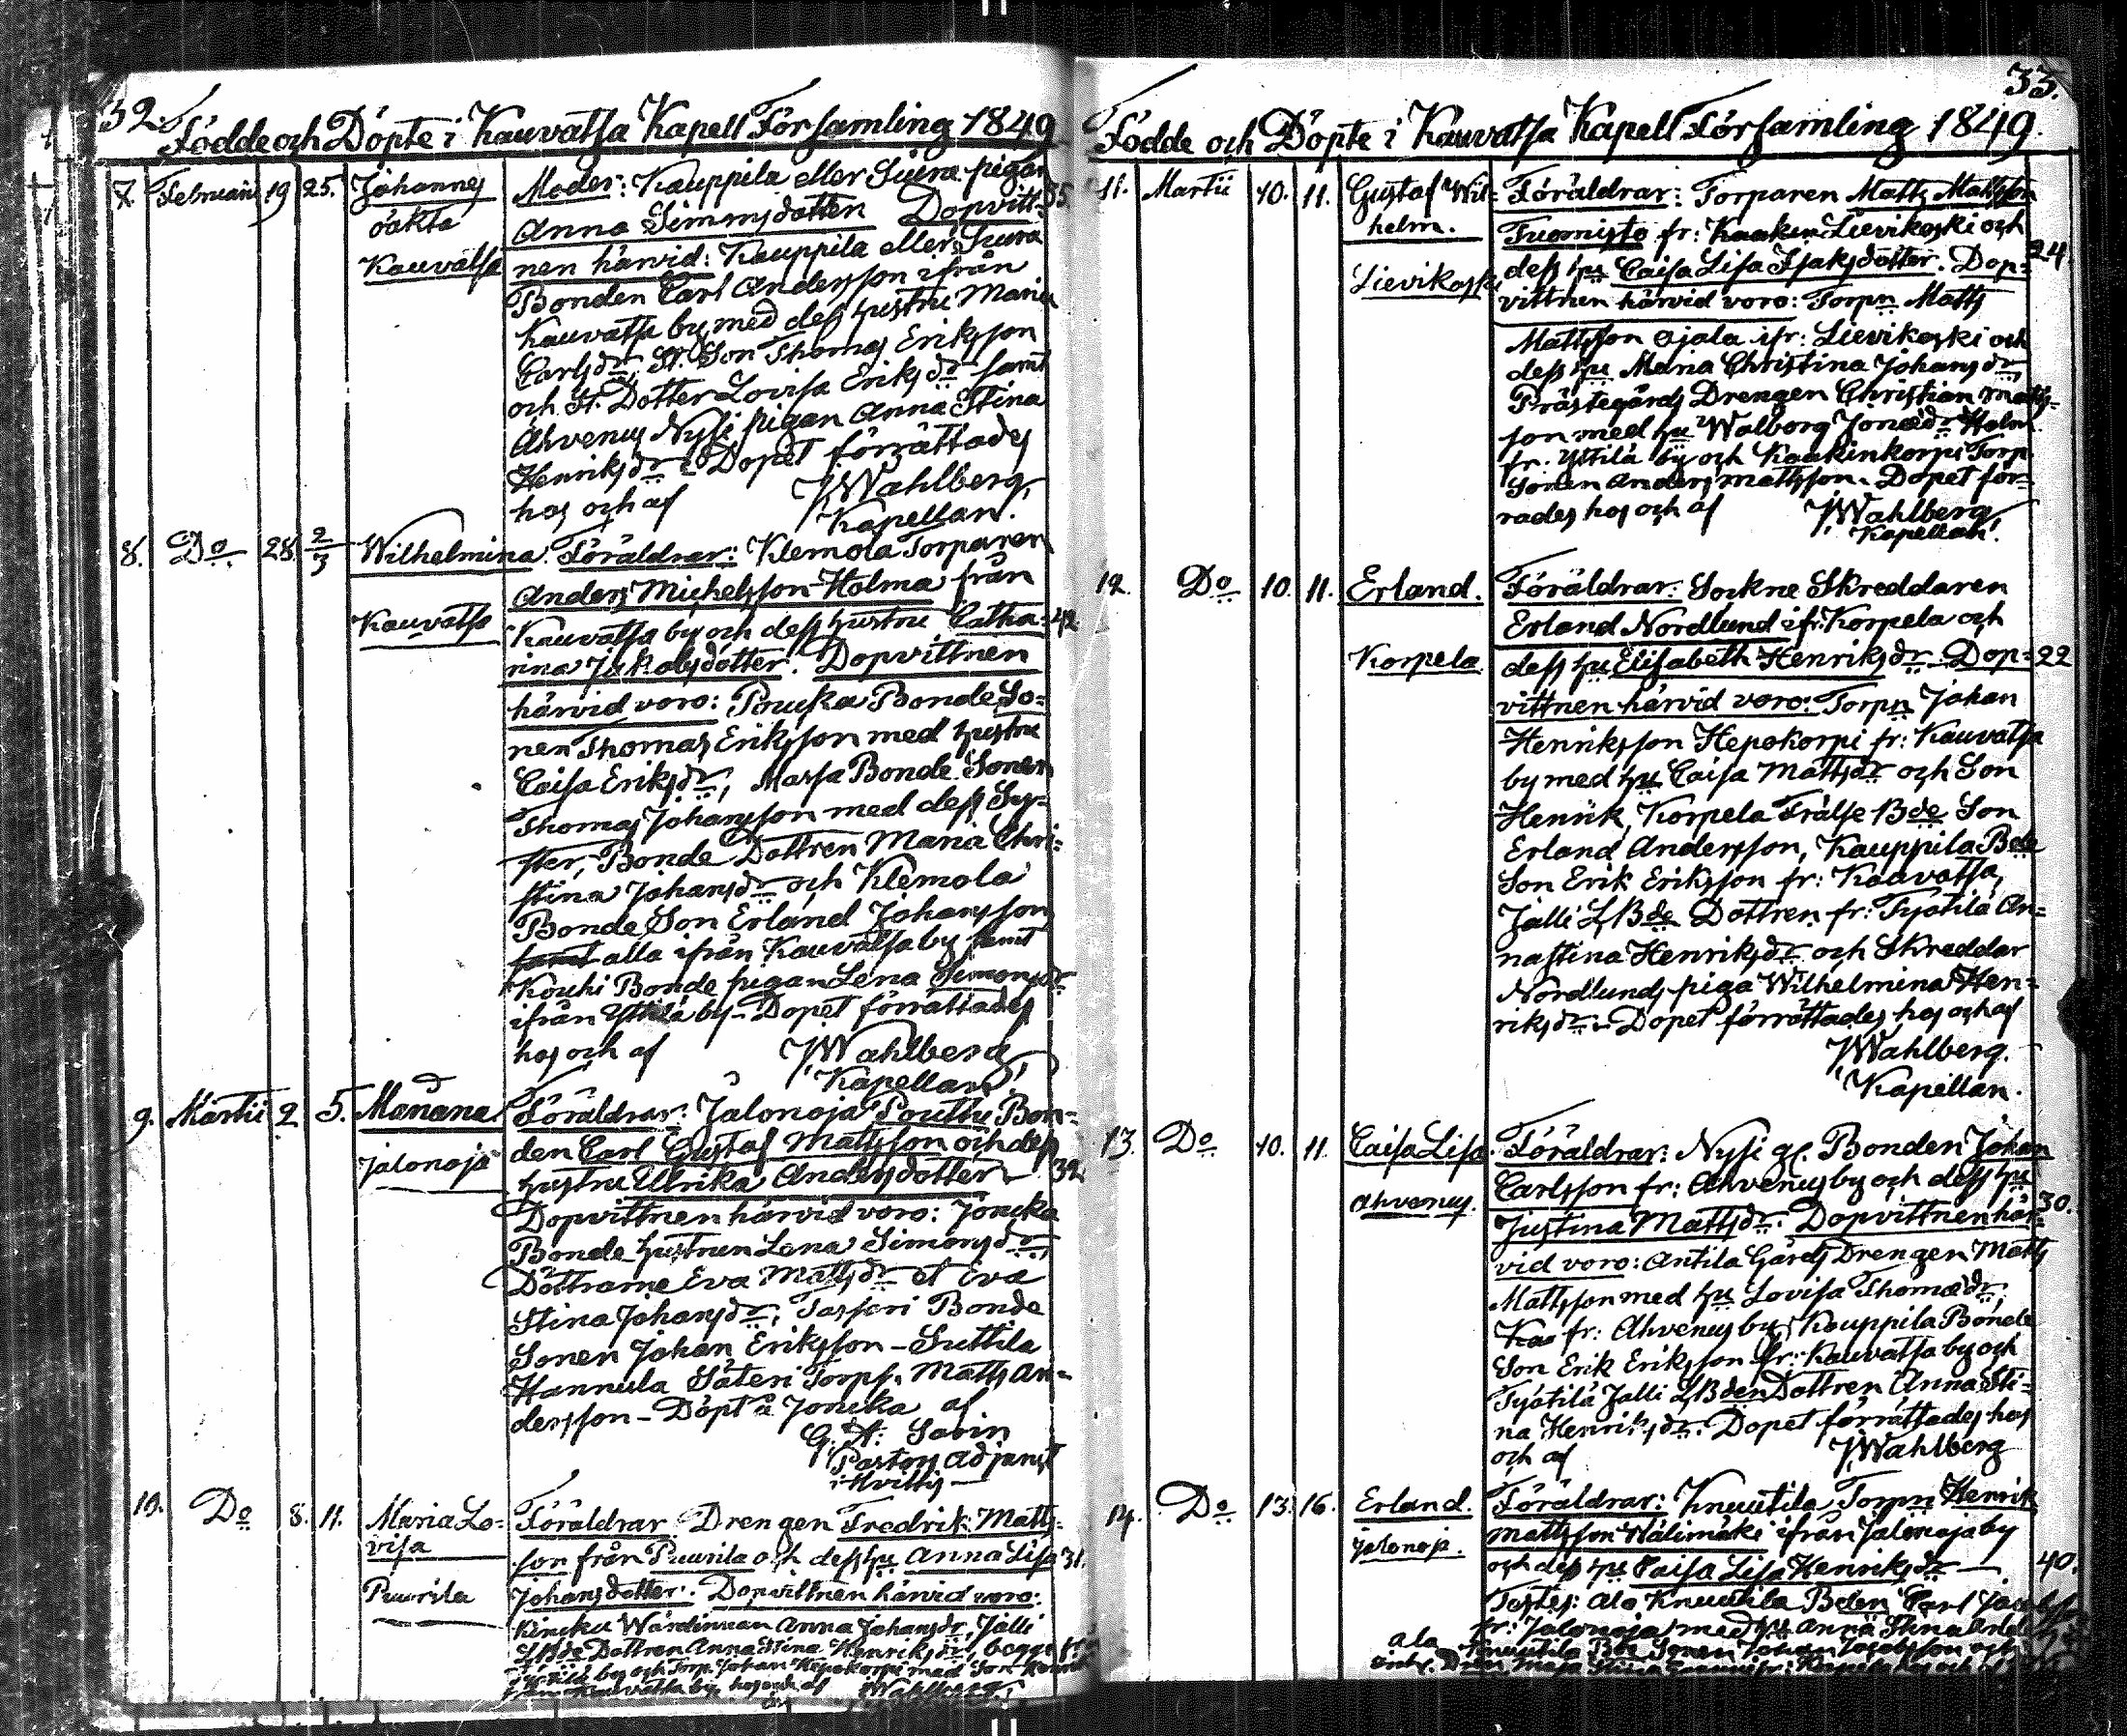 32.
Födde och Döpte i Kauvatsa Kapell Församling 1849
7. Februarii 19 25. Johannes Moder: Kauppila eller Siura pigan
oäkta Anna Simonsdotter Dopvitt= 35.
Kauvatsa nen härvid: Kauppila eller Siura
Bonden Carl Andersson ifrån
Kauvatsa by med dess hustru Maria
Carlsdr, St. Son Thomas Eriksson
och St. Dotter Lovisa Eriksdr samt
Ahvenus Nysi pigan Anna Stina
Henriksdr – Dopet förrättades
hos och af JWahlberg,
Kapellan.
8. Do 28 2/3 Wilhelmina. Föräldrar: Klemola Torparen
Anders Michelsson Holma från
Kauvatsa Kauvatsa by och dess hustru Catha= 42
rina Jakobsdotter. Dopvittnen
härvid voro: Bonde So=
nen Thomas Eriksson med hustru
Caisa Eriksdr, Massa Bonde Sonen
Thomas Johansson med dess Sy=
ster, Bonde Dottren Maria Chri=
stina Johansdr och Klemola
Bonde Son Erland Johansson
samt alla ifrån Kauvatsa by samt
Kouhi Bonde pigan Lena Simonsdr
ifrån Yttilä by – Dopet förrättades
hos och af JWahlberg
Kapellan!
9. Martii 2 5. Mariana Föräldrar: Jalonoja Pouttu Bon=
den Carl Gustaf Mattsson och dess
Jalonoja hustru Ulrika Andersdotter 32
Dopvittnen härvid voro: Joncka
Bonde hustrun Lena Simonsdr,
Döttrarne Eva Mattsdr et Eva
Stina Johansdr, Bonde
Sonen Johan Eriksson – Suttila
Hannula Säteri Torps. Matts An=
dersson – Döpt å Joncka af
G. A. Savin
Pastors Adjunct
i Hvittis
10. Do 8. 11. Maria Lo= Föräldrar: Drengen Fredrik Matts=
visa son från Puurila och dess hu Anna Lisa 31.
Puurila Johansdotter. Dopvittnen härvid voro:
Anna Johansdr, Jalli
LBde Dottren Anna Stina Henriksdr, begge fr:
by och Torp. Johan Hepokorpi med Son Henrik
från Kauvatsa by hos och af JWahlberg
33.
Födde och Döpte i Kauvatsa Kapell Församling 1849.
11. Martii 10. 11. Gustaf Wil= Föräldrar: Torparen Matts Mattsson
helm. Tuomisto fr: Lievikoski och
Lievikoski dess hu Caisa Lisa Isaksdotter. Dop= 24.
vittnen härvid voro: Torpn Matts
Mattsson Ojala ifr: Lievikoski och
dess hu Maria Christina Johansdr,
Prästegårds Drengen Christian Matts=
son med hu Walborg Jonædr Holm
fr. Yttilä by och Kaakinkorpi Torp
Sonen Anders Mattsson. Dopet för=
rades hos och af JWahlberg
Kapellan!
12. Do 10. 11. Erland. Föräldrar: Sockne Skreddaren
Erland Nordlund ifr: Korpela och
Korpela. dess hu Elisabeth Henriksdr – Dop= 22
vittnen härvid voro: Torpn Johan
Henriksson Hepokorpi fr: Kauvatsa
by med hu Caisa Mattsdr och Son
Henrik, Korpela Frälse Bde Son
Erland Andersson, Kauppila Bde
Son Erik Eriksson fr: Kauvatsa,
Jalli LBde Dottren fr: Pyötilä An=
nastina Henriksdr och Skreddar
Nordlunds piga Wilhelmina Hen=
riksdr – Dopet förrättades hos och af
JWahlberg.
Kapellan.
13. Do 10. 11. Caisa Lisa. Föräldrar: Nysi gl. Bonden Johan
Carlsson fr: Ahvenus by och dess hu
Ahvenus. Justina Mattsdr. Dopvittnen här= 30.
vid voro: Antila Gårds Drengen Matts
Mattsson med hu Lovisa Thomædr,
Kau fr: Ahvenus by, Kauppila Bonde
Son Erik Eriksson fr: Kauvatsa by och
Pyötilä Jalli LBden Dottren Anna Sti=
na Henriksdr. Dopet förrättades hos
och af JWahlberg
14. Do 13. 16. Erland. Föräldrar: Knuutila Torpn Henrik
Mattsson Wälimäki ifrån Jalonoja by
Jalonoj. och dess hu Caisa Lisa Henriksdr 40.
Testes: Ala Knuutila Bden Carl
fr: Jalonoja med hu Anna Stina
Ala Knuutila Bde Sonen Johan Jacobsson och